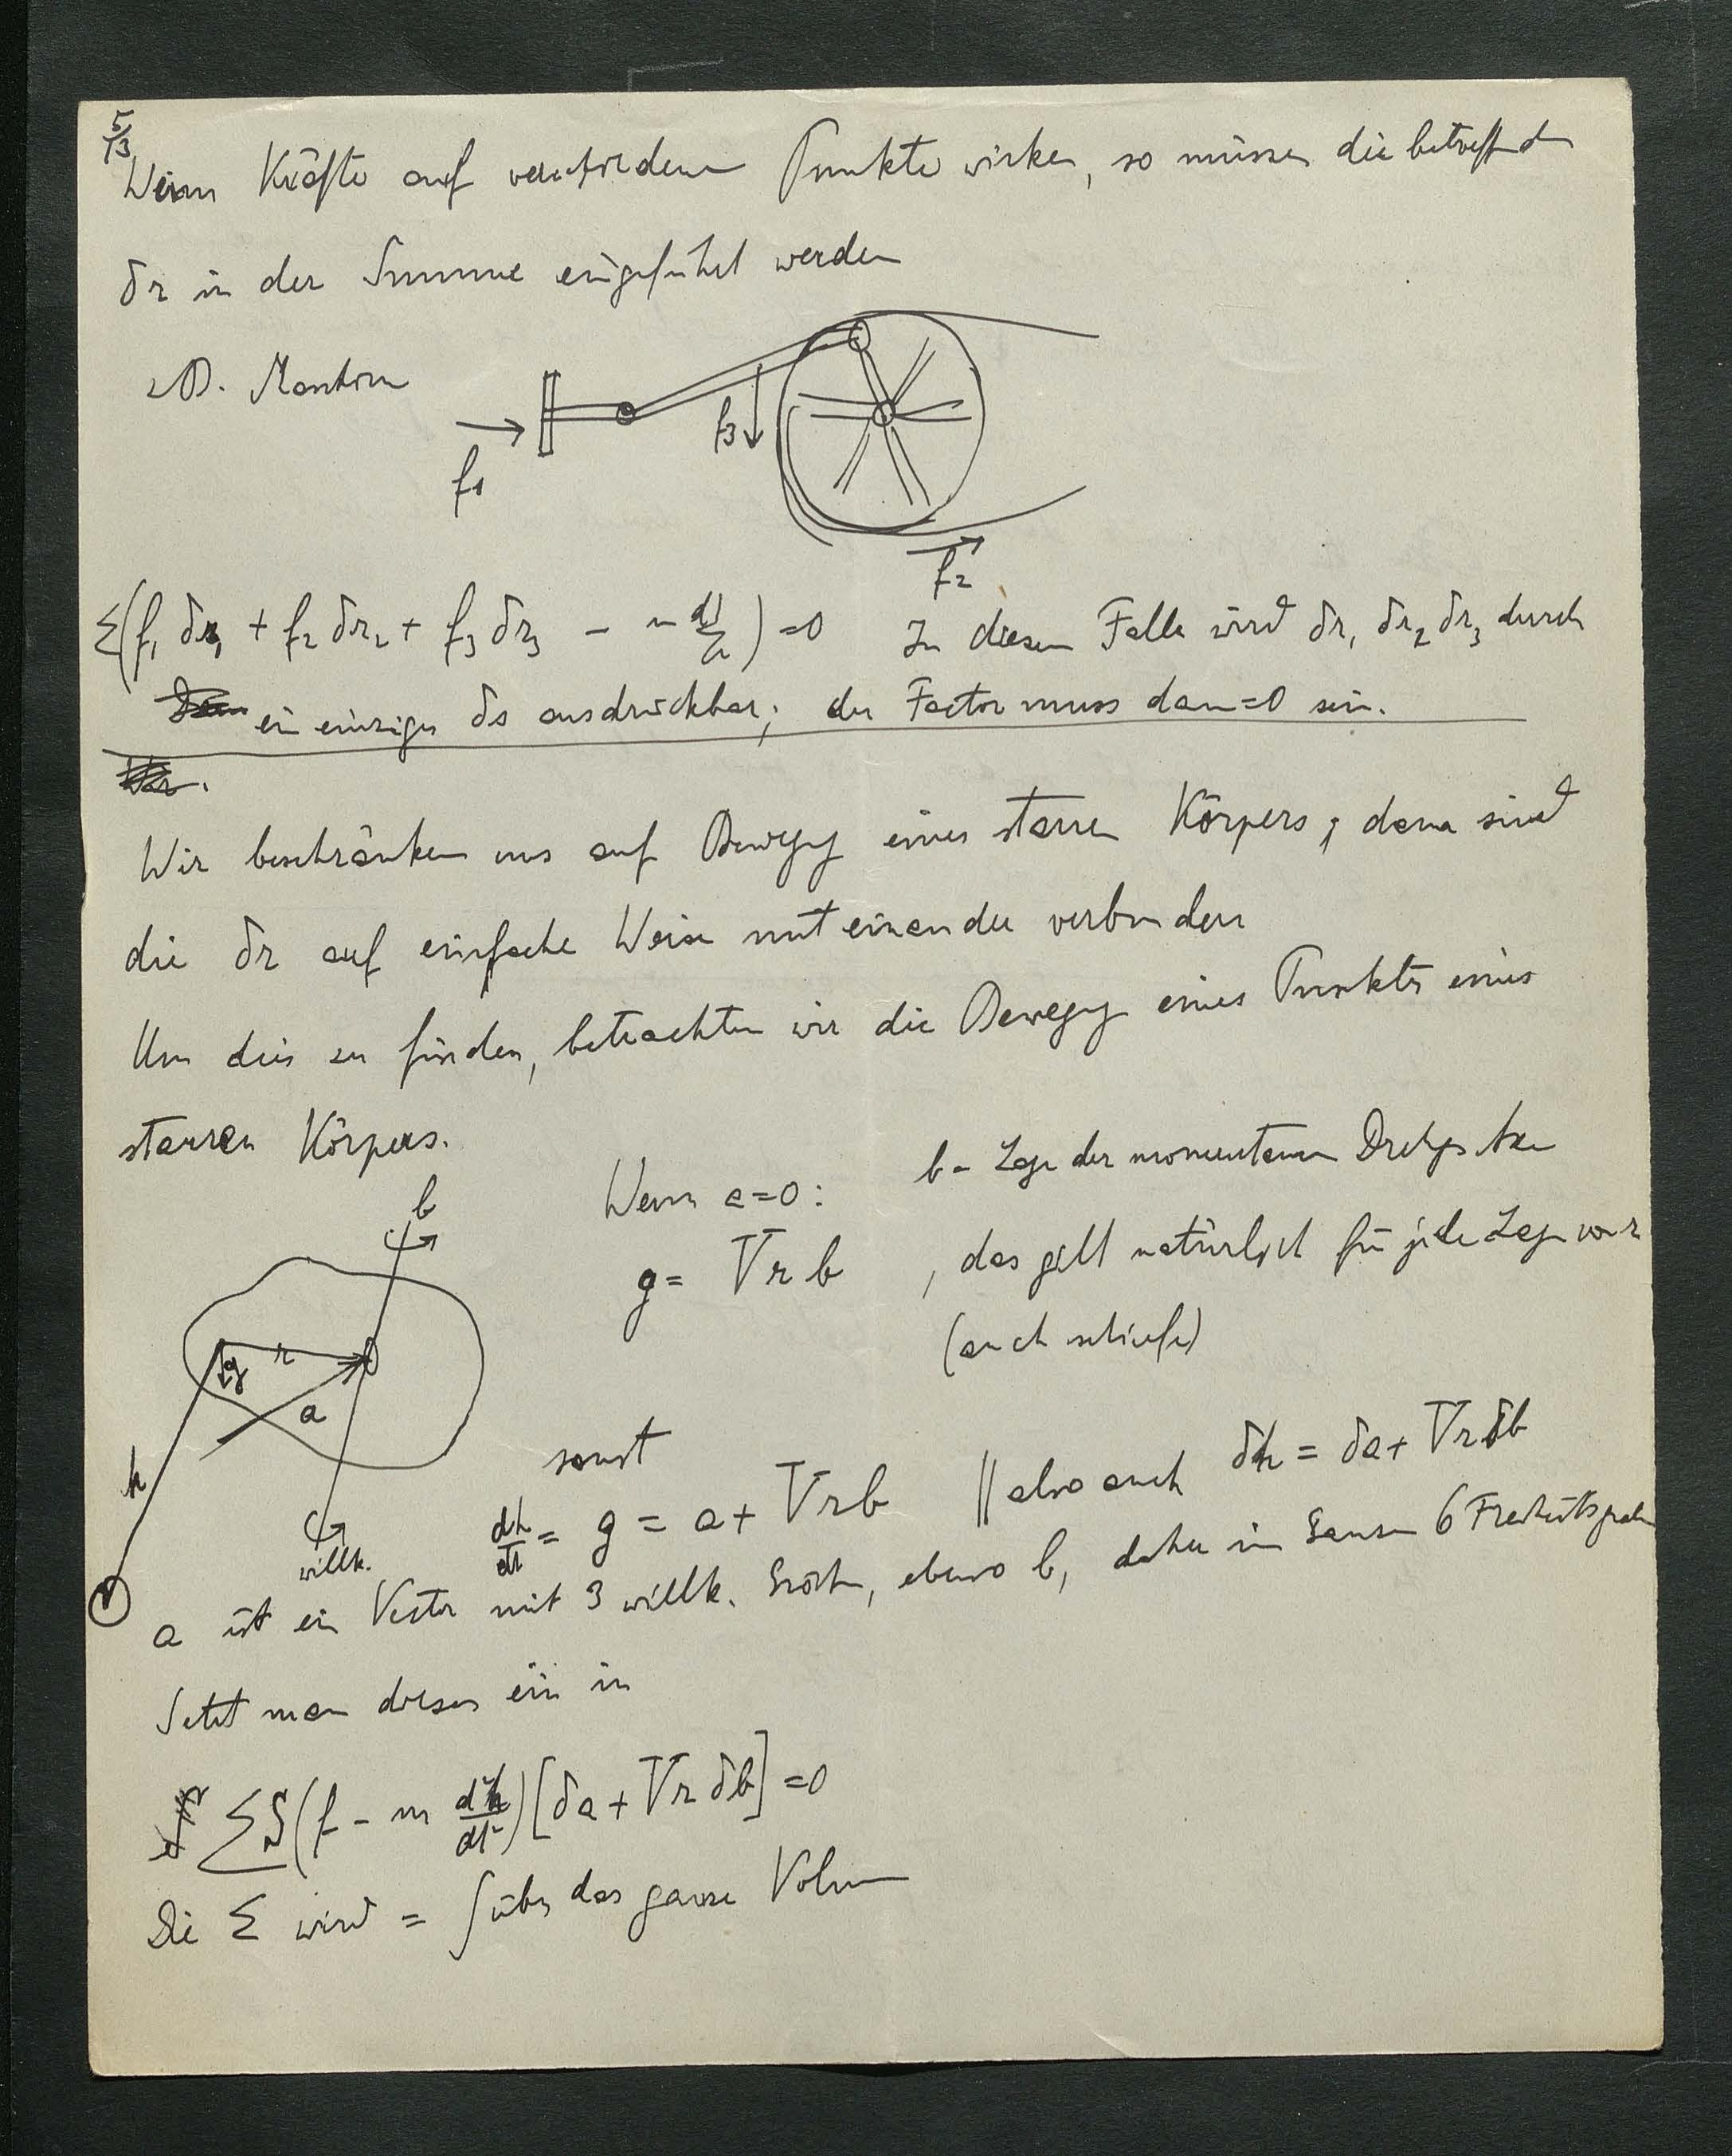 5/13
Wenn Kräfte auf verschiedene Punkte wirken, so müssen die betreffenden
δr in der Summe eingeführt werden
z.B. Maschine
f₁
f₃
f₂
Σ(f₁ δr₁ + f₂ δr₂ + f₃ δr₃ − m) = 0 In diesem Falle wird δr₁ δr₂ δr₃ durch
ein einziges δs ausdrückbar; der Factor muss dann = 0 sein.
Wir beschränken uns auf Bewegg eines starren Körpers; dann sind
die δr auf einfache Weise mit einander verbunden
Um dies zu finden, betrachten wir die Bewegg eines Punktes eines
starren Körpers.
b = Lage der momentanen Drehgs Axe
Wenn a = 0 :
g = V r b , das gilt natürlich für jede Lage von r
(auch schiefe)
b
g
r
a
h
willk.
sonst
dh/dt = g = a + V r b || also auch δh = δa + V r δb
a ist ein Vector mit 3 willk. Größen, ebenso b, daher im Ganzen 6 Freiheitsgrade
Setzt man dieses ein in
Σ S (f − m d²h/dt²) [δa + V r δb] = 0
Die Σ wird = ∫ über das ganze Volum